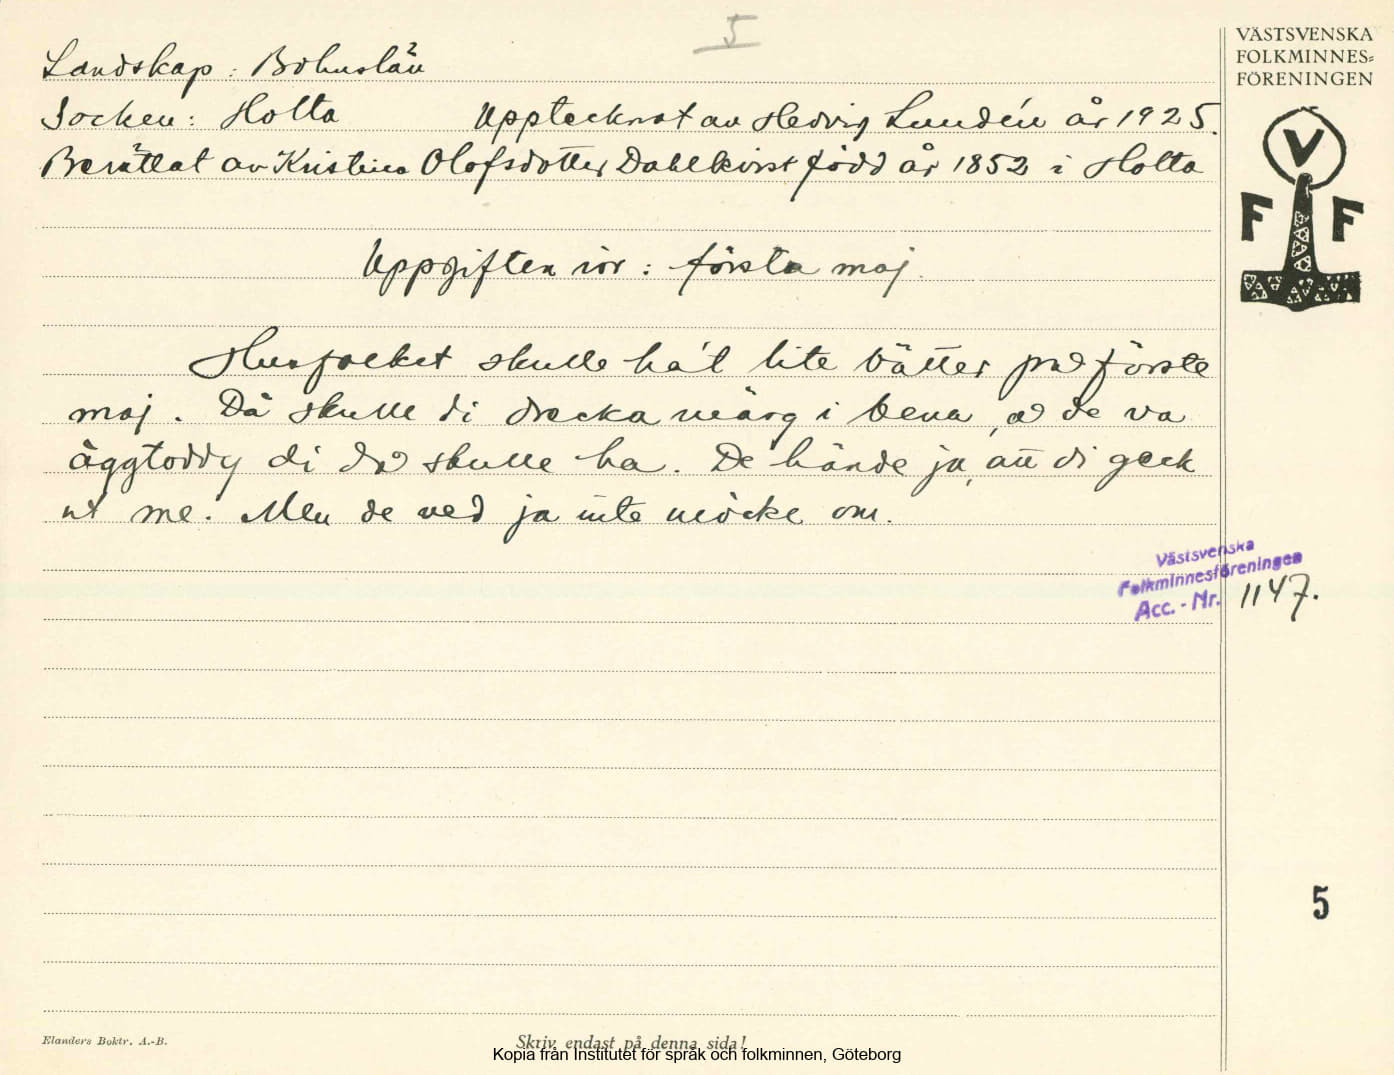 5
VÄSTSVENSKA
FOLKMINNES=
FÖRENINGEN
V
F F
Landskap: Bohuslän
Socken: Holta Upptecknat av Hedvig Lundén år 1925.
Berättat av Kristina Olofsdotter Dahlkvist född år 1852 i Holta
Uppgiften rör: första maj.
Husfolket skulle ha't lite bätter på förste
maj. Då skulle di drecka märg i bena, å de va
äggtoddy di då skulle ha. De hände ja, att di geck
ut me. Men de ved ja inte möcke om.
Västsvenska
Folkminnesföreningen
Acc. - Nr. 1147.
5
Elanders Boktr. A.-B.
Skriv endast på denna sida!
Kopia från Institutet för språk och folkminnen, Göteborg